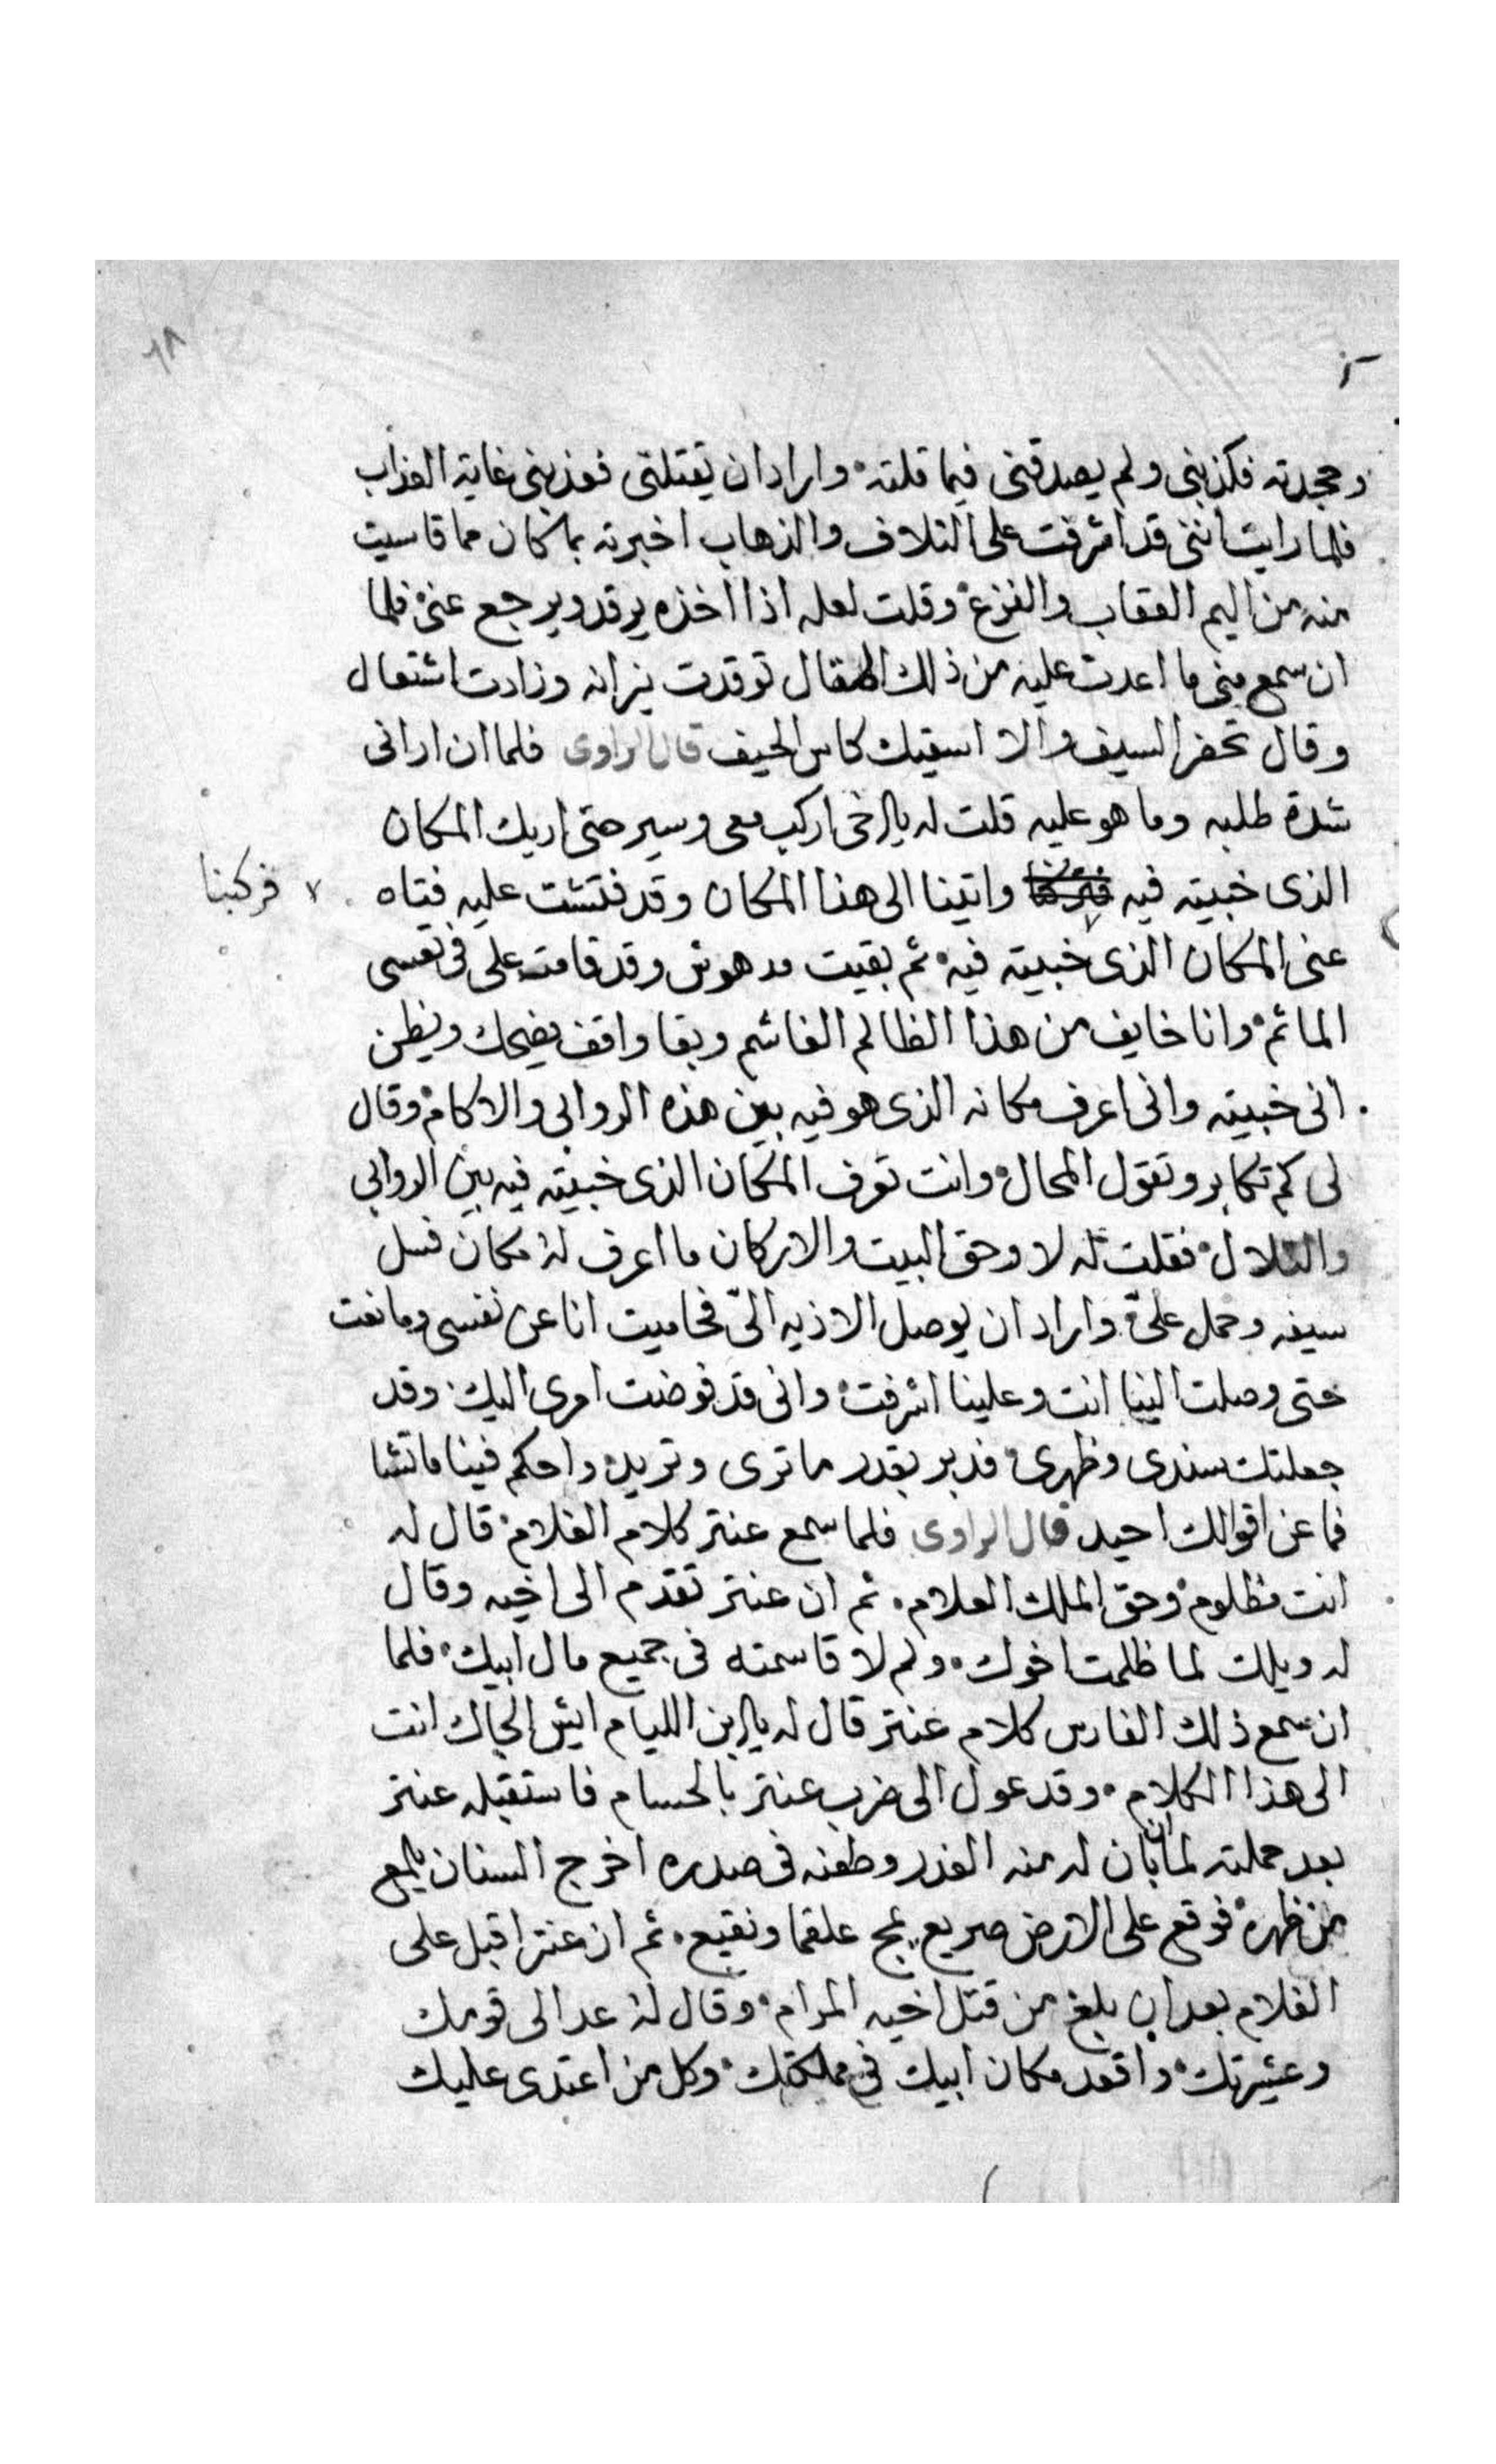 وجحدته فكذبني ولم يصدقني فيما قلته واراد ان يقتلني فعذبني غاية العذاب
فلما رايت انني قد اشرفت على التلاف والذهاب اخبرته بما كان مما قاسيت
منه من اليم العقاب والفزع وقلت لعله اذا اخذه يرقد ويرجع عني فلما
ان سمع مني ما اعدت عليه من ذلك المقال توقدت نيرانه وزادت اشتعال
وقال تحضر السيف والا اسقيك كاس الحيف قال الراوى فلما ان ارانى
شدة طلبه وما هو عليه قلت له يا اخى اركب معى وسير حتى اريك المكان
الذى خبيته فيه واتينا الى هذا المكان وقد فتشت عليه فتاه
فركبنا
عنى المكان الذى خبيته فيه ثم بقيت مدهوش وقد قامت على فى نفسى
الماثم وانا خايف من هذا الظالم الغاشم وبقا واقف يضحك ويظن
انى خبيته وانى اعرف مكانه الذى هو فيه بين هذه الروابى والاكام وقال
لى كم تكابر وتقول المحال وانت تعرف المكان الذى خبيته فيه بين الروابي
والتلال فقلت له لا وحق البيت والاركان ما اعرف له مكان فسل
سيفه وحمل علىّ واراد ان يوصل الاذيه الىّ فحاميت انا عن نفسى ومانعت
حتى وصلت الينا انت وعلينا اشرفت وانى قد فوضت امرى اليك وقد
جعلتك سندى وظهرى فدبر بقدر ما ترى وتريد واحكم فينا ما تشا
فما عن اقوالك احيد قال الراوى فلما سمع عنتر كلام الغلام قال له
انت مظلوم وحق الملك العلام ثم ان عنتر تقدم الى اخيه وقال
له ويلك لما ظلمت اخوك ولم لا قاسمته فى جميع مال ابيك فلما
ان سمع ذلك الفارس كلام عنتر قال له يا ابن الليام ايش الجاك انت
الى هذا الكلام وقد عول الى ضرب عنتر بالحسام فاستقبله عنتر
بعد حملته لما ان بان له منه الغدر وطعنه فى صدره اخرج السنان يلمع
من ظهره فوقع على الارض صريع يمج علقما ونقيع ثم ان عنتر اقبل على
الغلام بعد ان بلغ من قتل اخيه المرام وقال له عد الى قومك
وعشيرتك واقعد مكان ابيك فى مملكتك وكل من اعتدى عليك